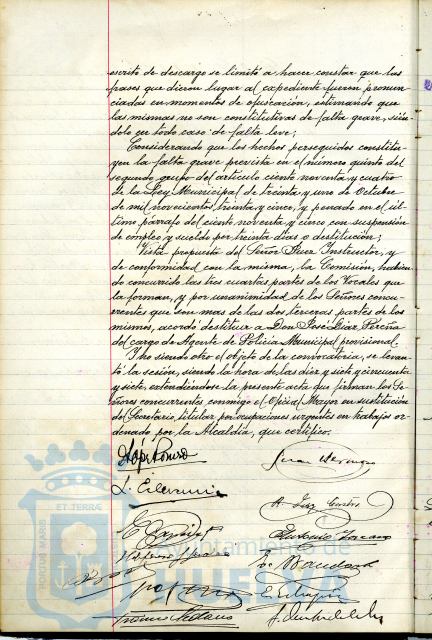 escrito de descargo se limitó a hacer constar que las
frases que dieron lugar al expediente fueron pronun-
ciadas en momentos de ofuscación, estimando que
las mismas no son constitutivas de falta grave, sién-
dolo en todo caso de falta leve;
Considerando que los hechos perseguidos constitu-
yen la falta grave prevista en el número quinto del
segundo grupo del artículo ciento noventa y cuatro
de la Ley Municipal de treinta y uno de Octubre
de mil novecientos treinta y cinco, y penado en el úl-
timo párrafo del ciento noventa y cinco con suspensión
de empleo y sueldo por treinta días o destitución;
Vista propuesta del Señor Juez Instructor, y
de conformidad con la misma, la Comisión, habien-
do concurrido las tres cuartas partes de los Vocales que
la forman, y por unanimidad de los Señores concu-
rrentes que son mas de las dos terceras partes de los
mismos, acordó destituir a Don José Díaz
del cargo de Agente de Policía Municipal provisional.
Y no siendo otro el objeto de la convocatoria, se levan-
tó la sesión, siendo la hora de las diez y siete y cincuenta
y siete, extendiéndose la presente acta que firman los Se-
ñores concurrentes conmigo el Oficial Mayor en sustitución
del Secretario, titular por ocupaciones urgentes en trabajos or-
denado por la Alcaldía, que certifico.
PORTUS MARIS ET TERRÆ
Ayuntamiento de
HUELVA